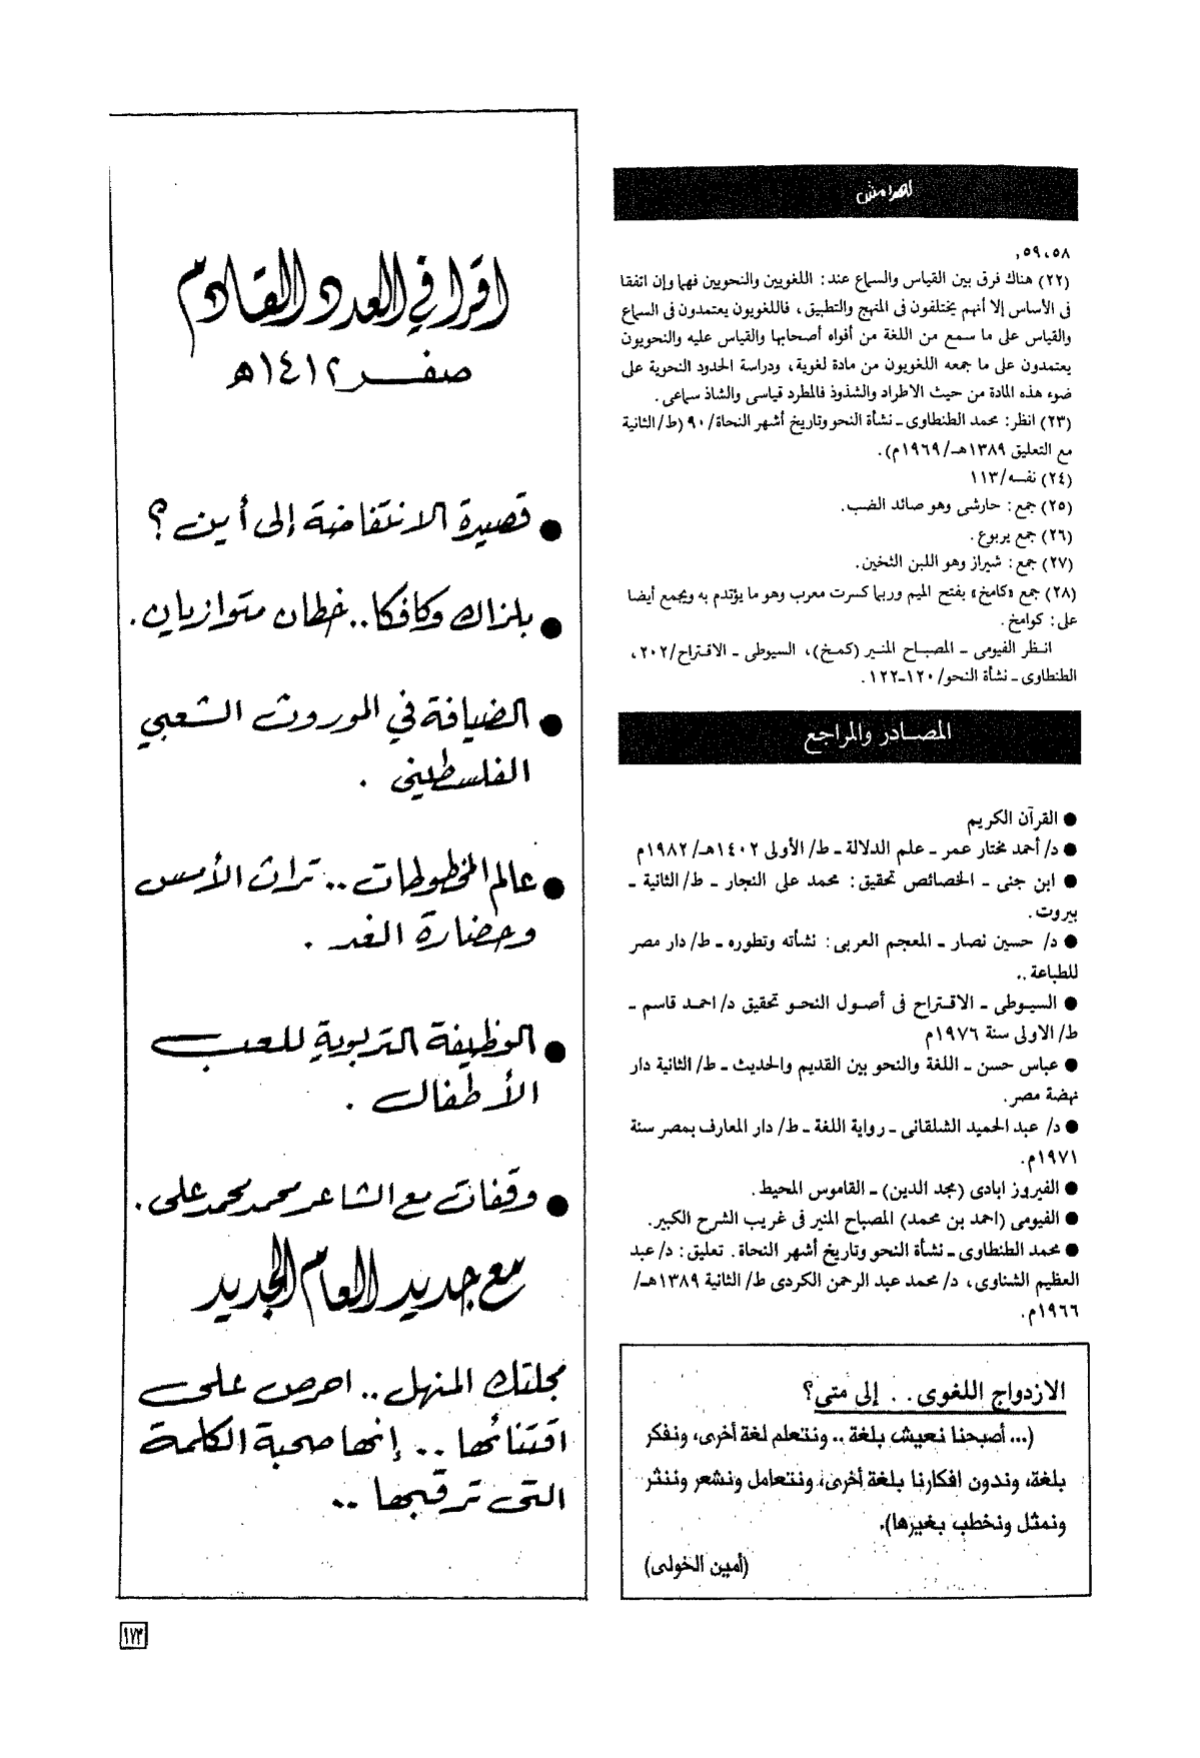 الهوامش
٥٨، ٥٩,
(٢٢) هناك فرق بين القياس والسماع عند: اللغويين والنحويين فهما وإن اتفقا
فى الأساس إلا أنهم يختلفون فى المنهج والتطبيق، فاللغويون يعتمدون فى السماع
والقياس على ما سمع من اللغة من أفواه أصحابها والقياس عليه والنحويون
يعتمدون على ما جمعه اللغويون من مادة لغوية، ودراسة الحدود النحوية على
ضوء هذه المادة من حيث الاطراد والشذوذ فالمطرد قياسى والشاذ سماعى.
(٢٣) انظر: محمد الطنطاوى ـ نشأة النحو وتاريخ أشهر النحاة/ ٩٠ (ط/ الثانية
مع التعليق ١٣٨٩هـ/ ١٩٦٩م).
(٢٤) نفسه/ ١١٣
(٢٥) جمع: حارشى وهو صائد الضب.
(٢٦) جمع يربوع.
(٢٧) جمع: شيراز وهو اللبن الثخين.
(٢٨) جمع «كامخ» بفتح الميم وربما كسرت معرب وهو ما يؤتدم به ويجمع أيضا
على: كوامخ.
انـظر الفيومى ـ المصبـاح المنير (كمـخ)، السيوطى ـ الاقـتراح/ ٢٠٢،
الطنطاوى ـ نشأة النحو/ ١٢٠ـ١٢٢.
المصـادر والمراجع
● القرآن الكريم
● د/ أحمد مختار عمر ـ علم الدلالة ـ ط/ الأولى ١٤٠٢هـ/ ١٩٨٢م
● ابن جنى ـ الخصائص تحقيق: محمد على النجار ـ ط/ الثانية ـ
بيروت.
● د/ حسين نصار ـ المعجم العربى: نشأته وتطوره ـ ط/ دار مصر
للطباعة..
● السيـوطى ـ الاقـتراح فى أصـول النحـو تحقيق د/ احمـد قاسم ـ
ط/ الاولى سنة ١٩٧٦م
● عباس حسن ـ اللغة والنحو بين القديم والحديث ـ ط/ الثانية دار
نهضة مصر.
● د/ عبد الحميد الشلقانى ـ رواية اللغة ـ ط/ دار المعارف بمصر سنة
١٩٧١م.
● الفيروز ابادى (مجد الدين) ـ القاموس المحيط.
● الفيومى (احمد بن محمد) المصباح المنير فى غريب الشرح الكبير.
● محمد الطنطاوى ـ نشأة النحو وتاريخ أشهر النحاة. تعليق: د/ عبد
العظيم الشناوى، د/ محمد عبد الرحمن الكردى ط/ الثانية ١٣٨٩هـ/
١٩٦٦م.
الازدواج اللغوى.. إلى متى؟
(... أصبحنا نعيش بلغة.. ونتعلم لغة أخرى، ونفكر
بلغة، وندون افكارنا بلغة أخرى، ونتعامل ونشعر وننثر
ونمثل ونخطب بغيرها).
(أمين الخولى)
اقرأ في العدد القادم
صفـــر ١٤١٢هـ
● قصيدة الانتفاضة إلى أين؟
● بلزاك وكافكا.. خطان متوازيان.
● الضيافة في الموروث الشعبي
الفلسطينى.
● عالم المخطوطات.. تراث الأمس
وحضارة الغد.
● الوظيفة التربوية للعب
الأطفال.
● وقفات مع الشاعر محمد محمد على.
مع جديد العام الجديد
مجلتك المنهل.. احرص على
اقتنائها.. إنها صحبة الكلمة
التى ترقبها..
١٧٣